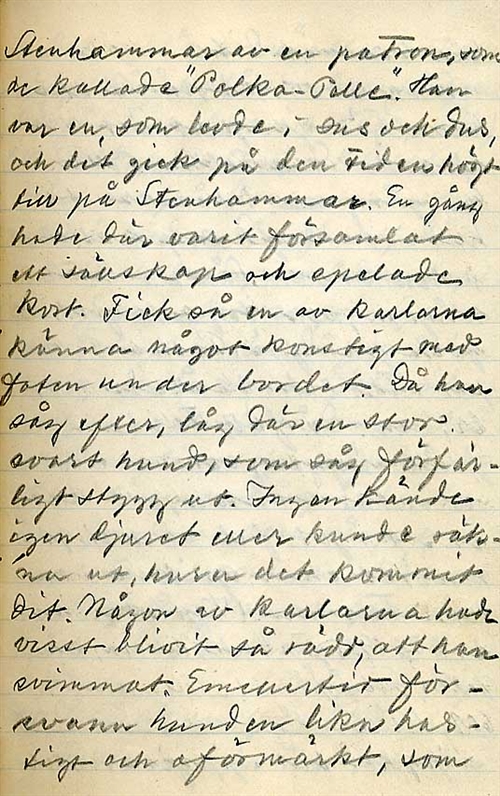 Stenhammar av en patron, som
de kallade "Polka-Palle". Han
var en, som levde i sus och dus,
och det gick på den tiden högt
till på Stenhammar. En gång
hade där varit församlat
ett sällskap och spelade
kort. Fick så en av karlarna
känna något konstigt med
foten under bordet. Då han
såg efter, låg där en stor
svart hund, som såg förfär-
ligt stygg ut. Ingen kände
igen djuret eller kunde räk-
na ut, huru det kommit
dit. Någon av karlarna hade
visst blivit så rädd, att han
svimmat. Emellertid för-
svann hunden lika has-
tigt och oförmärkt, som